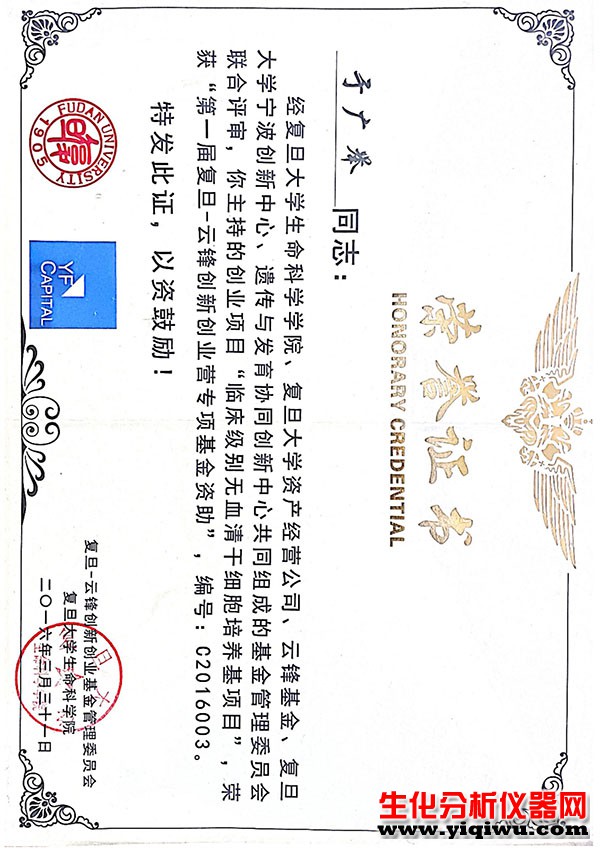 荣誉证书
HONORARY CREDENTIAL
于广卷 同志：
经复旦大学生命科学学院、复旦大学资产经营公司、云锋基金、复旦
大学宁波创新中心、遗传与发育协同创新中心共同组成的基金管理委员会
联合评审，你主持的创业项目“临床级别无血清干细胞培养基项目”，荣
获“第一届复旦-云锋创新创业营专项基金资助”，编号：C2016003。
特发此证，以资鼓励！
FUDAN UNIVERSITY
1905
YF
CAPITAL
复旦-云锋创新创业基金管理委员会
复旦大学生命科学院
二〇一六年三月三十一日
生化分析仪器网
www.yiqiwu.com